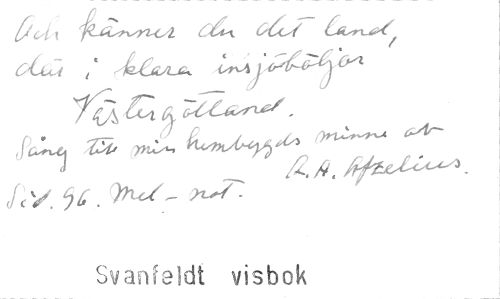 Och känner du det land,
där i klara insjöböljor
Västergötland.
Sång till min hembygds minne av
A.A. Afzelius.
Sid. 96. Mel-not.
Svanfeldt visbok